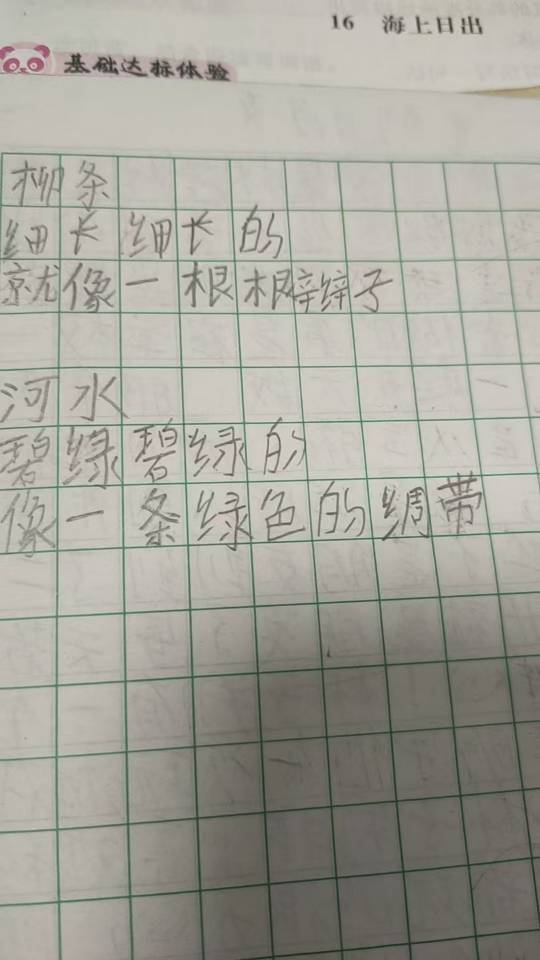 16 海上日出
基础达标体验
柳条
细长细长的
就像一根根辫子
河水
碧绿碧绿的
像一条绿色的绸带